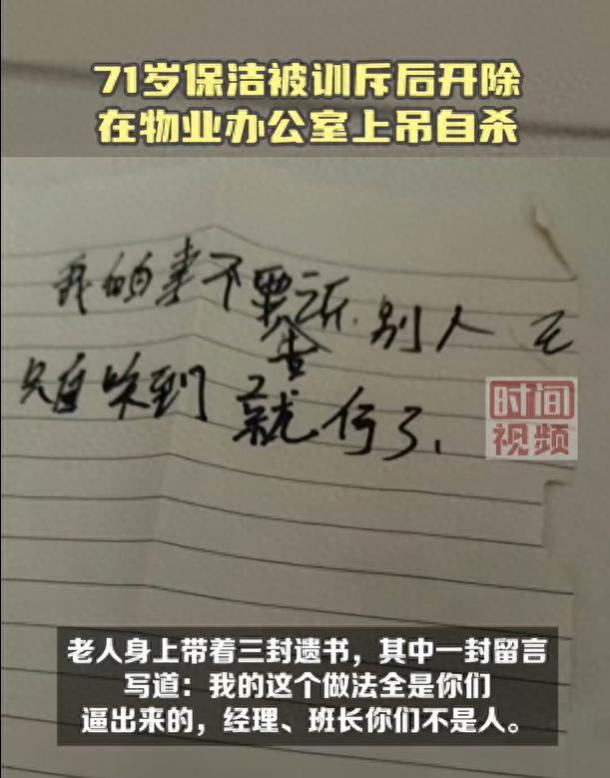 71岁保洁被训斥后开除
在物业办公室上吊自杀
我的事不要告诉别人
就行了.
时间
视频
老人身上带着三封遗书，其中一封留言
写道：我的这个做法全是你们
逼出来的，经理、班长你们不是人。